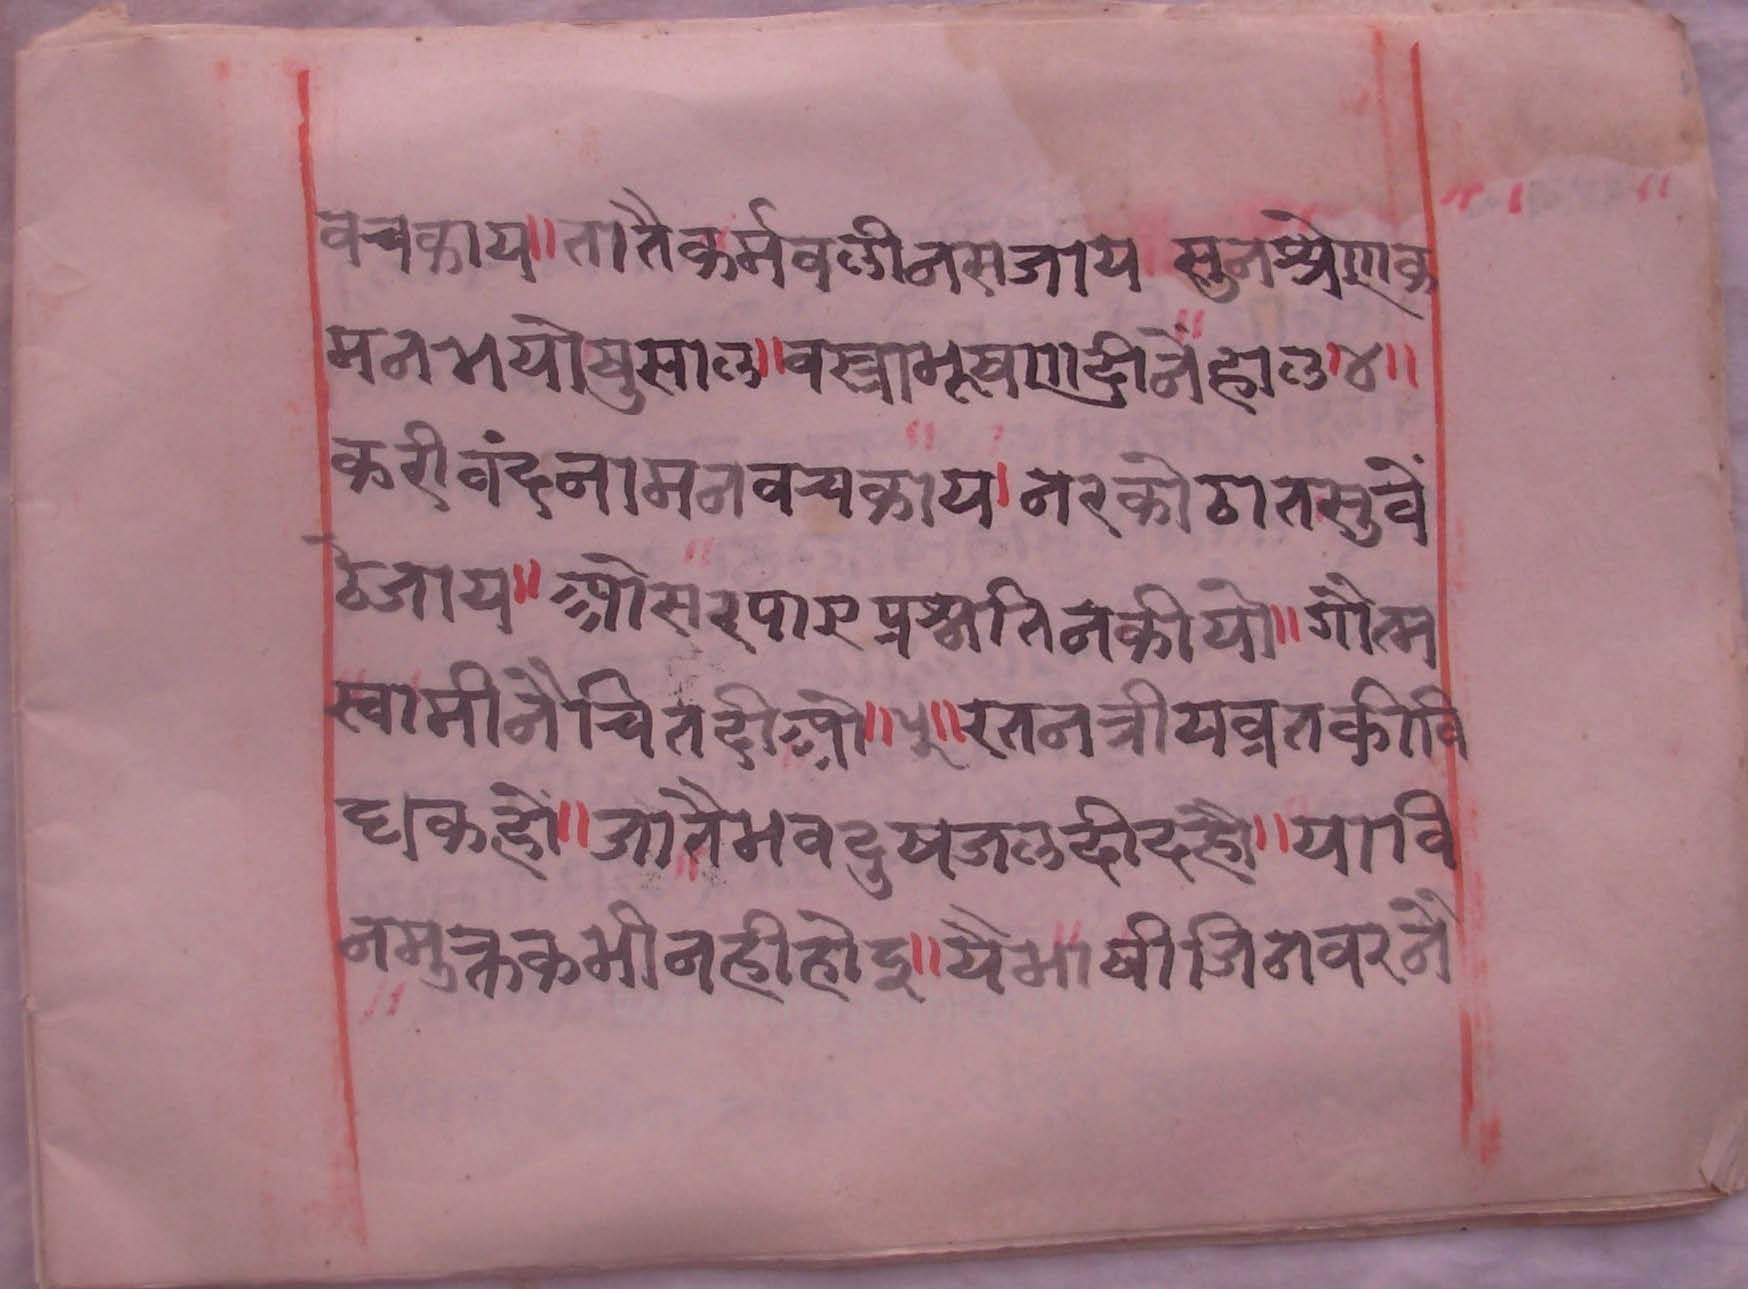 वचकाय॥तातैकर्मवलीनसजाय सुनश्रेणक
मनभयोषुसाल॥वस्त्राभूषणदीनेंहाल।४॥
करीवंदनामनवचकाय।नरकोठातसुवें
ठेजाय॥औसरपाएप्रश्नतिनकीयो॥गौत्म
स्वामीनैचितदीओ॥५॥रतनत्रीयव्रतकीवि
द्याकहौ॥जातैभवदुषजलदीदहौ॥यावि
नमुक्तकभीनहीहोइ॥यैभाषीजिनवरनै